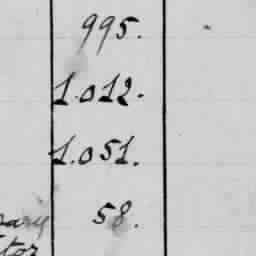 995.
1.012.
1.051.
58.